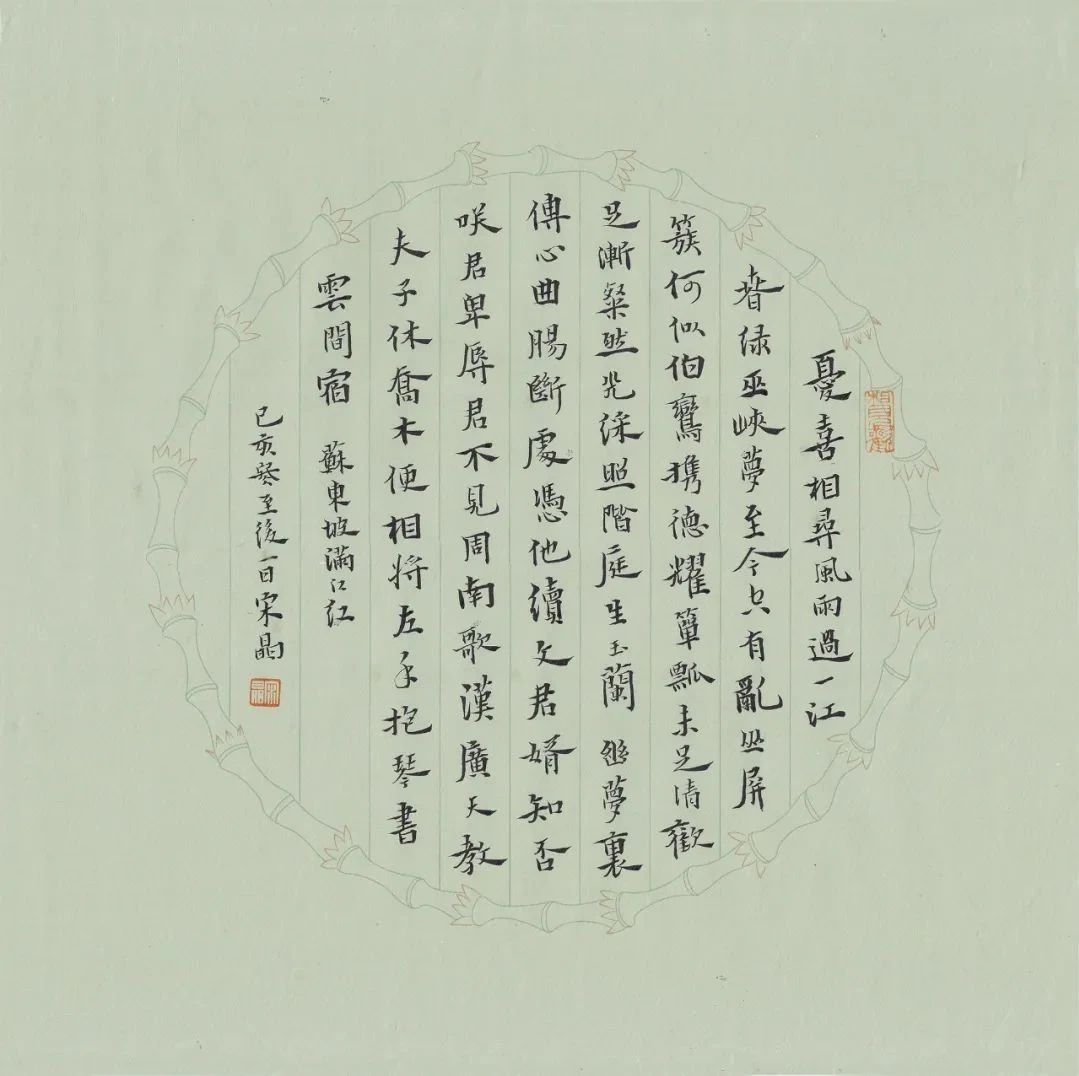 憂喜相尋風雨過一江
春緑巫峽夢至今空有亂山屏
簇何似伯鸞携德耀簞瓢未足清歡
足漸粲然光採照階庭生玉蘭 幽夢裏
傳心曲腸斷處憑他續文君婿知否
咲君卑辱君不見周南歌漢廣天教
夫子休喬木便相将左手抱琴書
雲間宿 蘇東坡滿江红
己亥至後一日宋晶